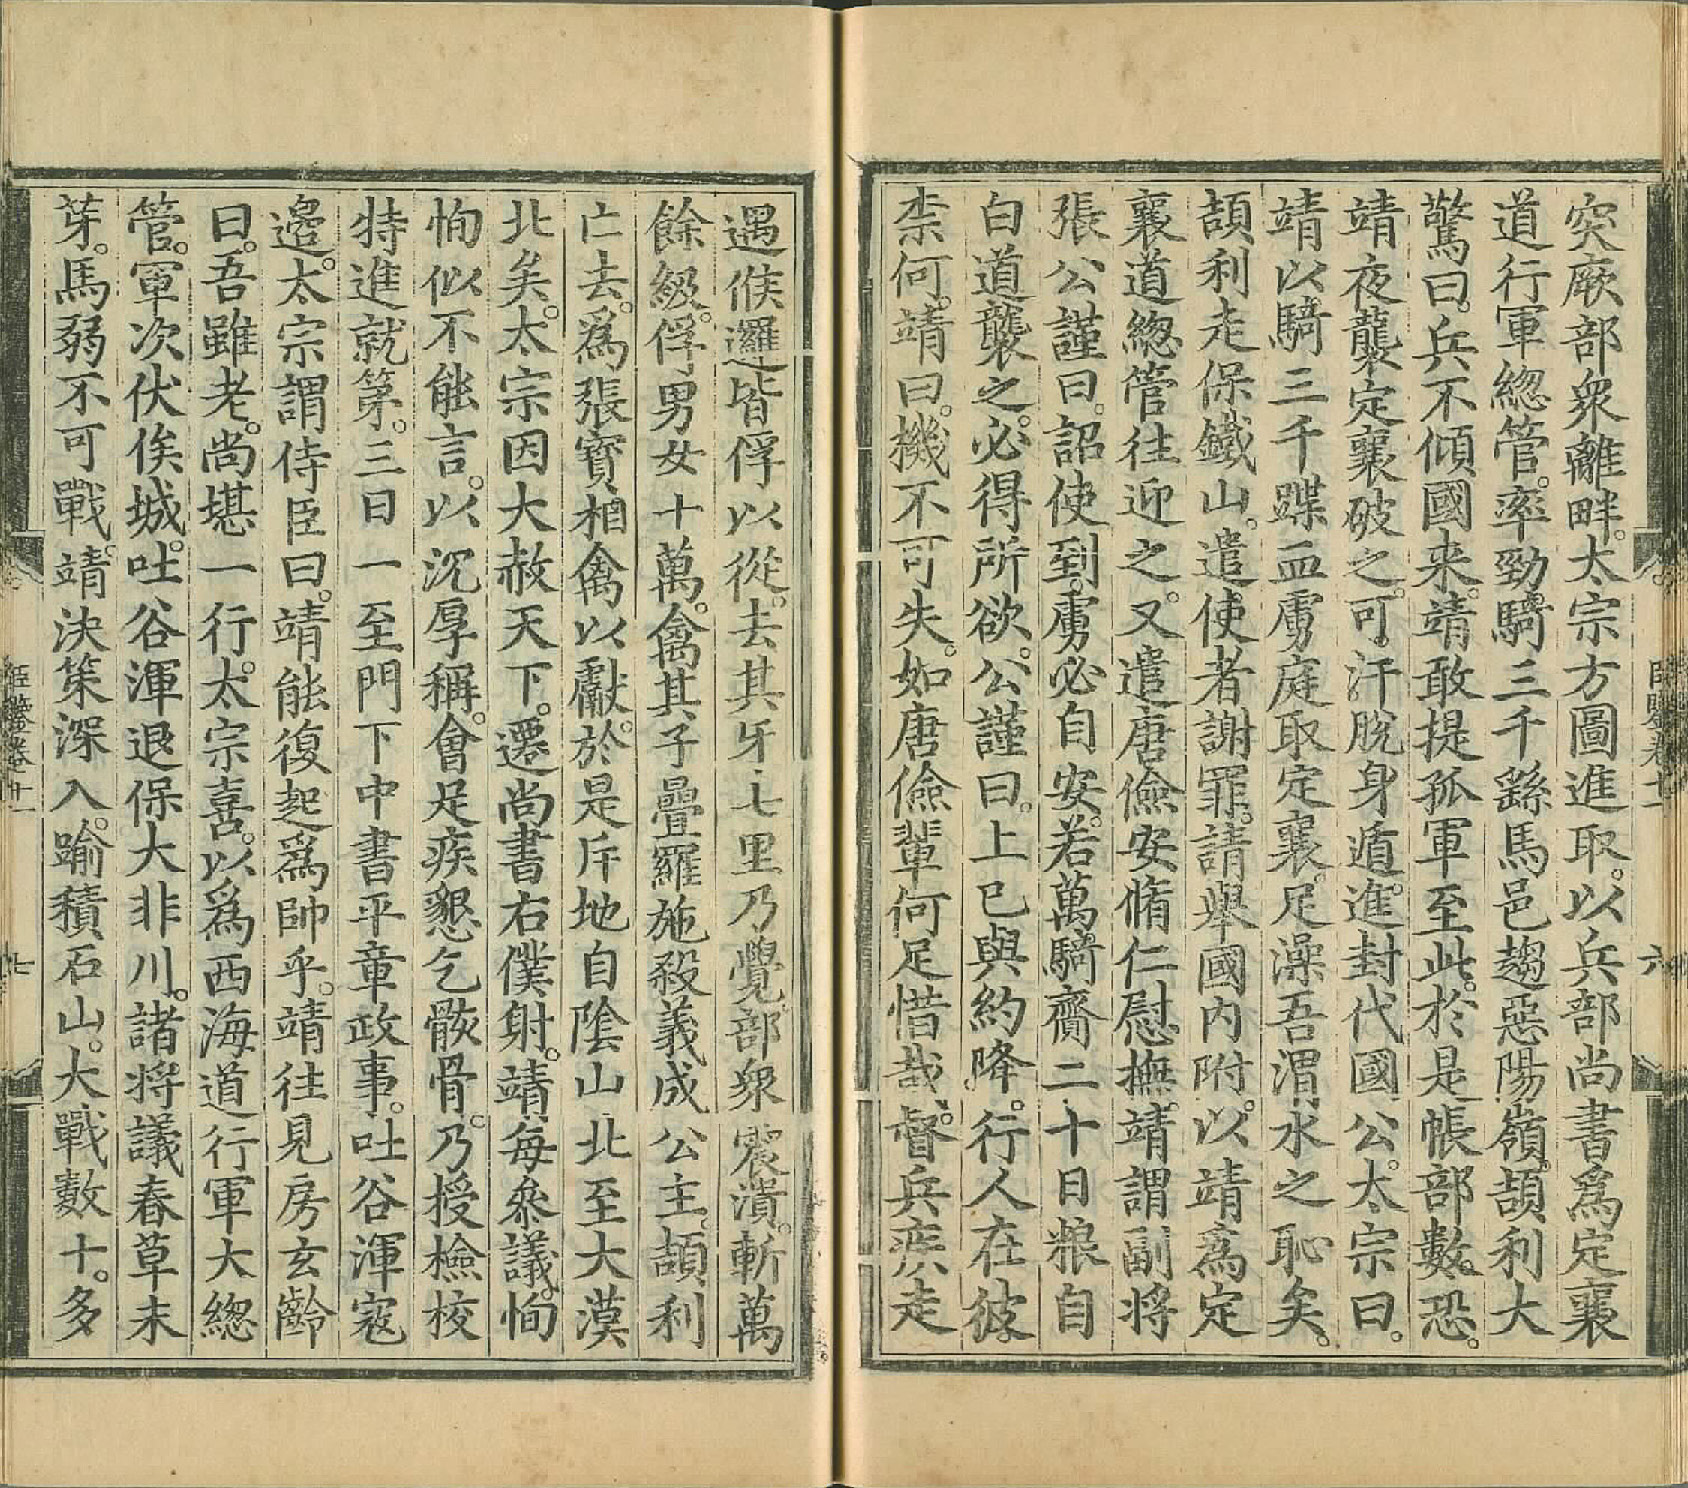 突厥部衆離畔。太宗方圖進取。以兵部尚書爲定襄
道行軍緫管。率勁騎三千繇馬邑趨惡陽嶺。頡利大
驚曰。兵不傾國来。靖敢提孤軍至此。於是帳部數恐。
靖夜襲定襄破之。可。汗脫身遁。進封代國公。太宗曰。
靖以騎三千蹀血虜庭取定襄。足澡吾渭水之恥矣。
頡利走保鐵山。遣使者謝罪。請舉國内附。以靖爲定
襄道緫管往迎之。又遣唐儉安脩仁慰撫。靖謂副將
張公謹曰。詔使到。虜必自安。若萬騎齎二十日粮自
白道襲之。必得所欲。公謹曰。上巳與約降。行人在彼。
柰何。靖曰。機不可失。如唐儉輩何足惜哉。督兵疾走
遇候邏皆俘以從。去其牙七里乃覺。部衆震潰。斬萬
餘級。俘男女十萬。禽其子疊羅施殺義成公主。頡利
亡去。爲張寳相禽以獻。於是斥地自隂山北至大漠
北矣。太宗因大赦天下。遷尚書右僕射。靖每叅議。恂
恂似不能言。以沉厚稱。會足疾懇乞骸骨。乃授檢校
特進就第。三日一至門下中書平章政事。吐谷渾寇
邉。太宗謂侍臣曰。靖能復起爲帥乎。靖往見房玄齡
曰。吾雖老。尚堪一行。太宗喜。以爲西海道行軍大緫
管。軍次伏俟城。吐谷渾退保大非川。諸将議春草未
芽。馬弱不可戰。靖決策深入。踰積石山。大戰數十。多
六
七